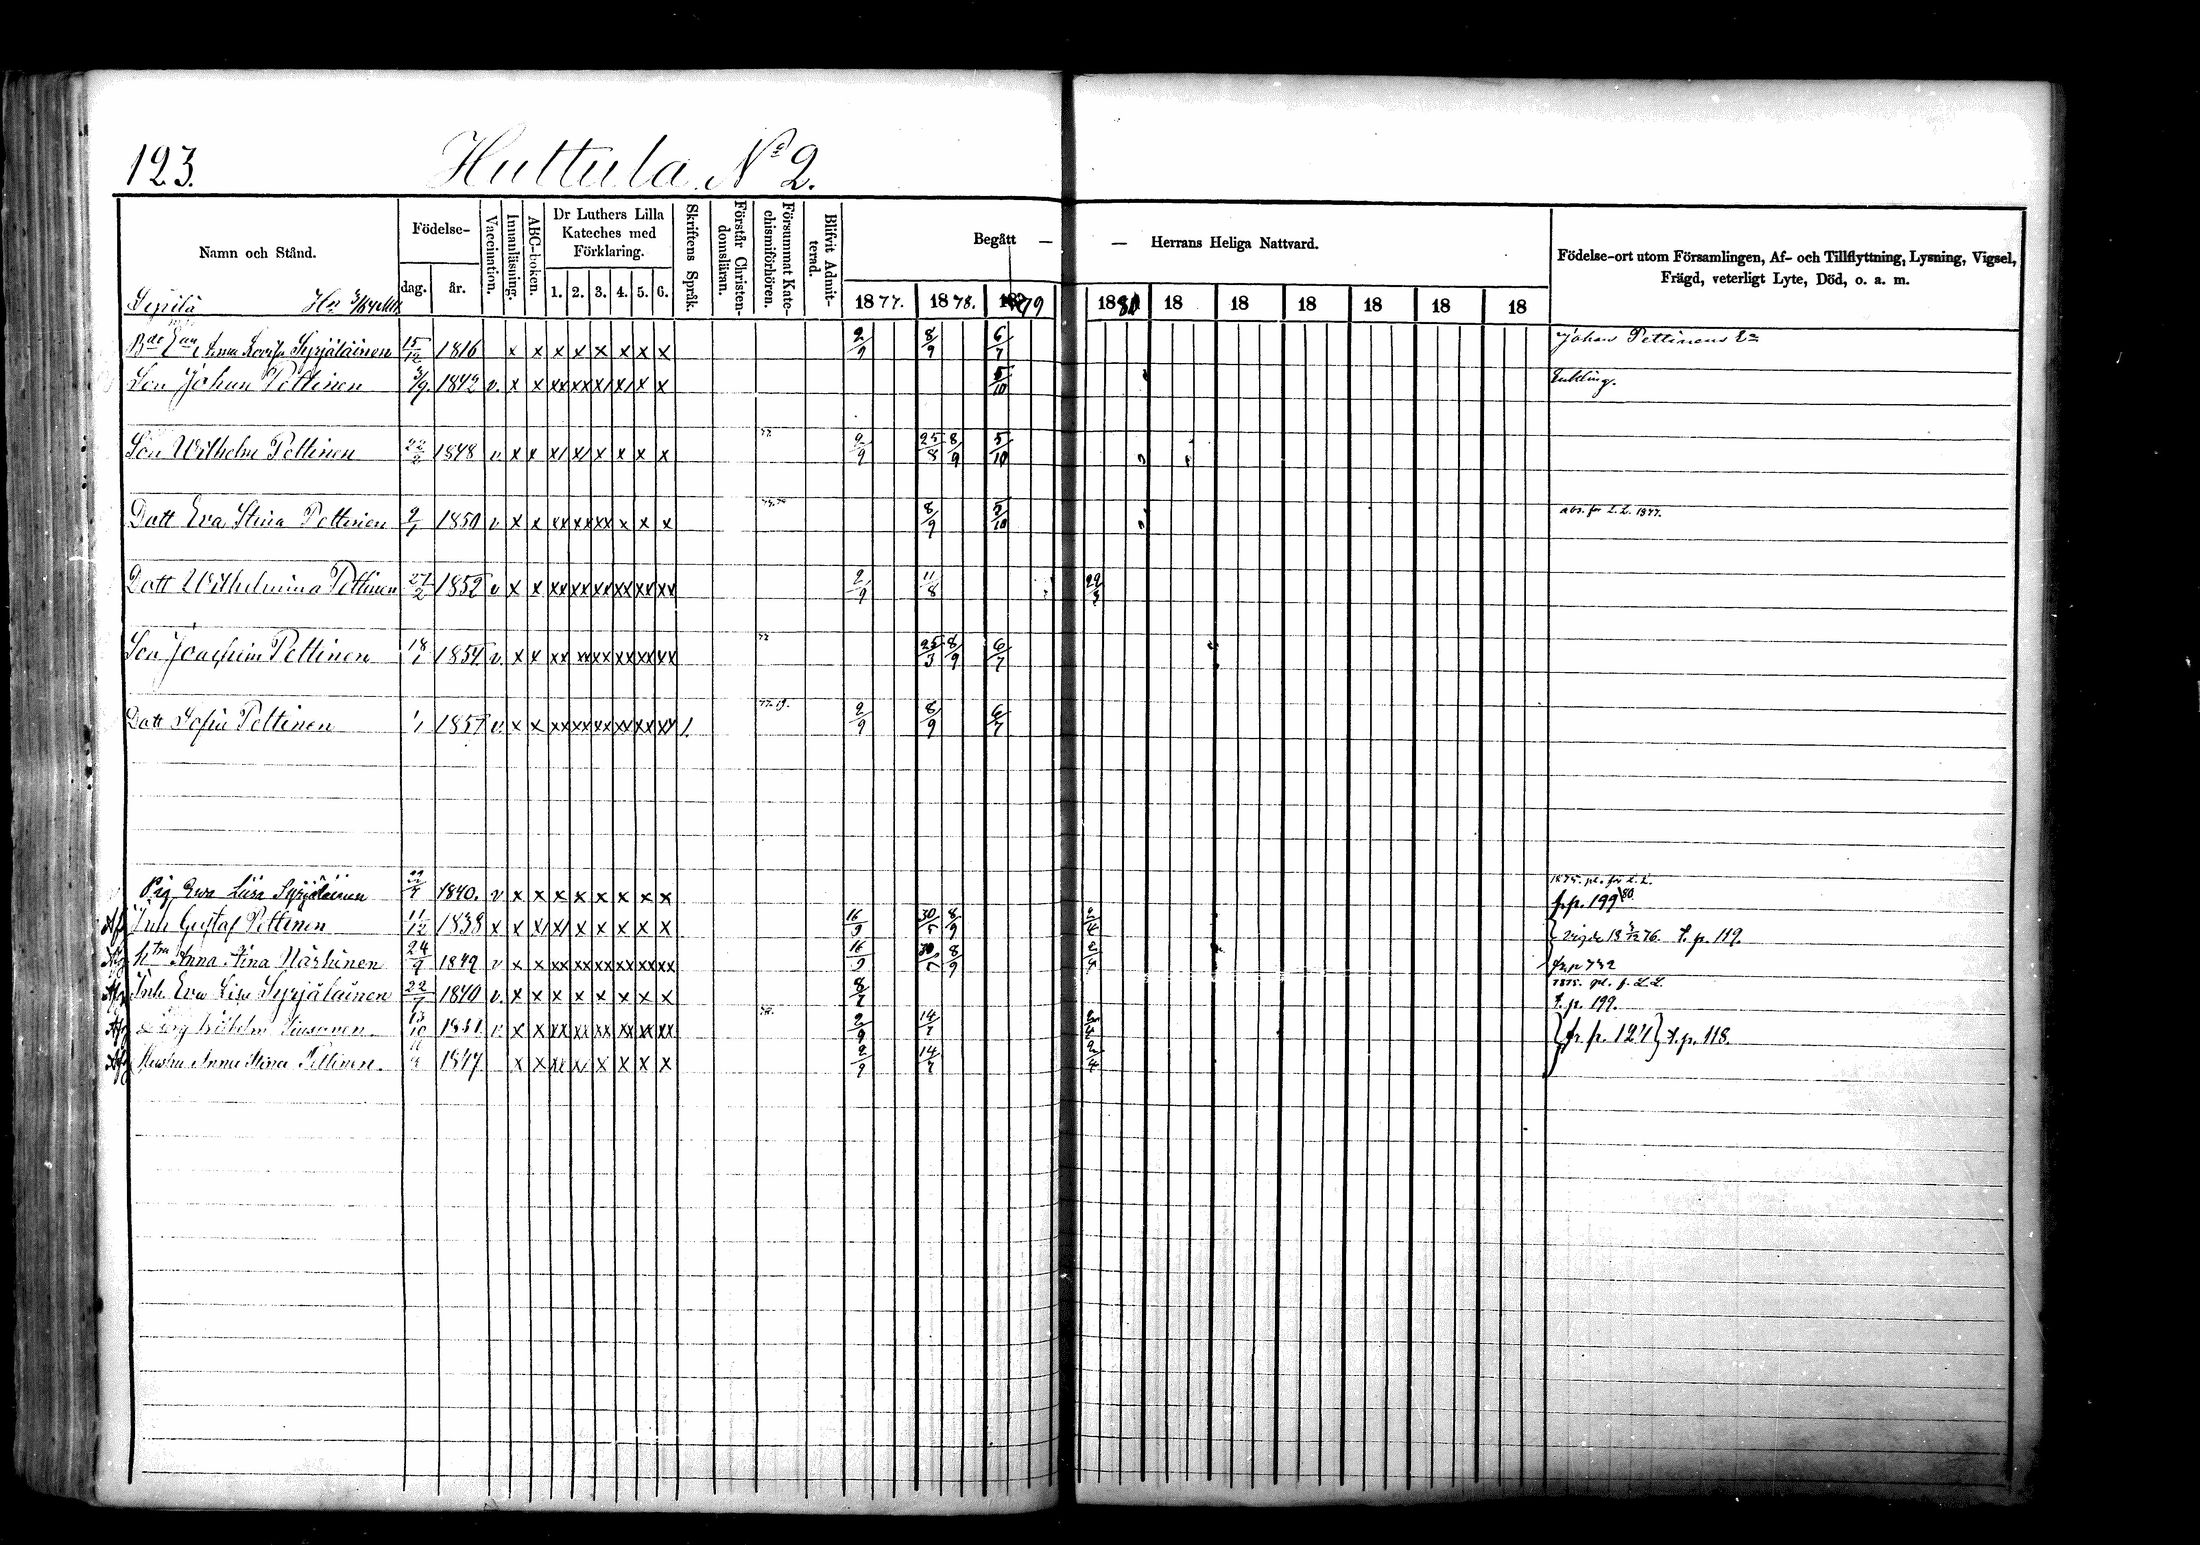 123.
Huttula. No 2.
Namn och Stånd.
Födelse-
dag.
år.
Vaccination.
Innanläsning.
ABC-boken.
Dr Luthers Lilla
Kateches med
Förklaring.
1. 2. 3. 4. 5. 6.
Skriftens Språk.
Förstår Christen-
domsläran.
Försummat Kate-
chismiförhören.
Blifvit Admit-
terad.
Begått — — Herrans Heliga Nattvard.
1877. 1878. 1879 1880 18 18 18 18 18 18
Födelse-ort utom Församlingen, Af- och Tillflyttning, Lysning, Vigsel,
Frägd, veterligt Lyte, Död, o. a. m.
Seppilä
Anna Lovisa Syrjäläinen 15/12 1816 x x x x x x x x 2/9 8/9 6/7 Johan Pettinens Ea
Son Johan Pettinen 1842 v. x x xx xx x x x x 5/10 Enkling.
Son Wilhelm Pettinen 22/2 1848 v x x x x x x x x 77. 2/9 25/8 8/9 5/10
Dott Eva Stina Pettinen 2/1 1850 v x x xx xx xx x x x 8/9 5/10 abs. för L. L. 1877.
Dott Wilhelmina Pettinen 27/2 1852 v x x xx xx xx xx xx xx 2/9 11/8 29/3
Son Joachim Pettinen 18/1 1854 v. x x xx xx xx xx xx xx 77 25/3 8/9 6/7
Dott Sofia Pettinen 1/1 1857 v. x x xx xx xx xx xx xx 1. 77-79. 2/9 8/9 6/7
1875. pl. för L. L.
Pig. Ewa Liisa Syrjäläinen 22/7 1840. v x x x x x x x x fr p. 199 80.
Afg Inh Gustaf Pettinen 11/12 1838 x x x x x x x x 16/9 30/5 8/9 2/4 vigde 76. t. p. 119.
Afg Htru Anna Stina Närhinen 24/9 1849 v x x xx xx xx xx xx xx 16/9 30/5 8/9 2/4 fr p 732
1875. pl. f. L. L.
Afg Inh Eva Lisa Syrjäläinen 22/7 1840 v. x x x x x x x x 8/7 t. p. 199.
Afg Wilhelm 13/10 1851 v x x xx xx xx xx xx xx 2/9 14/7 2/4 fr p. 121 t. p. 118.
Afg Hustru Anna Stina Pettinen. 1847 x x x x x x x x 2/9 14/7 2/4